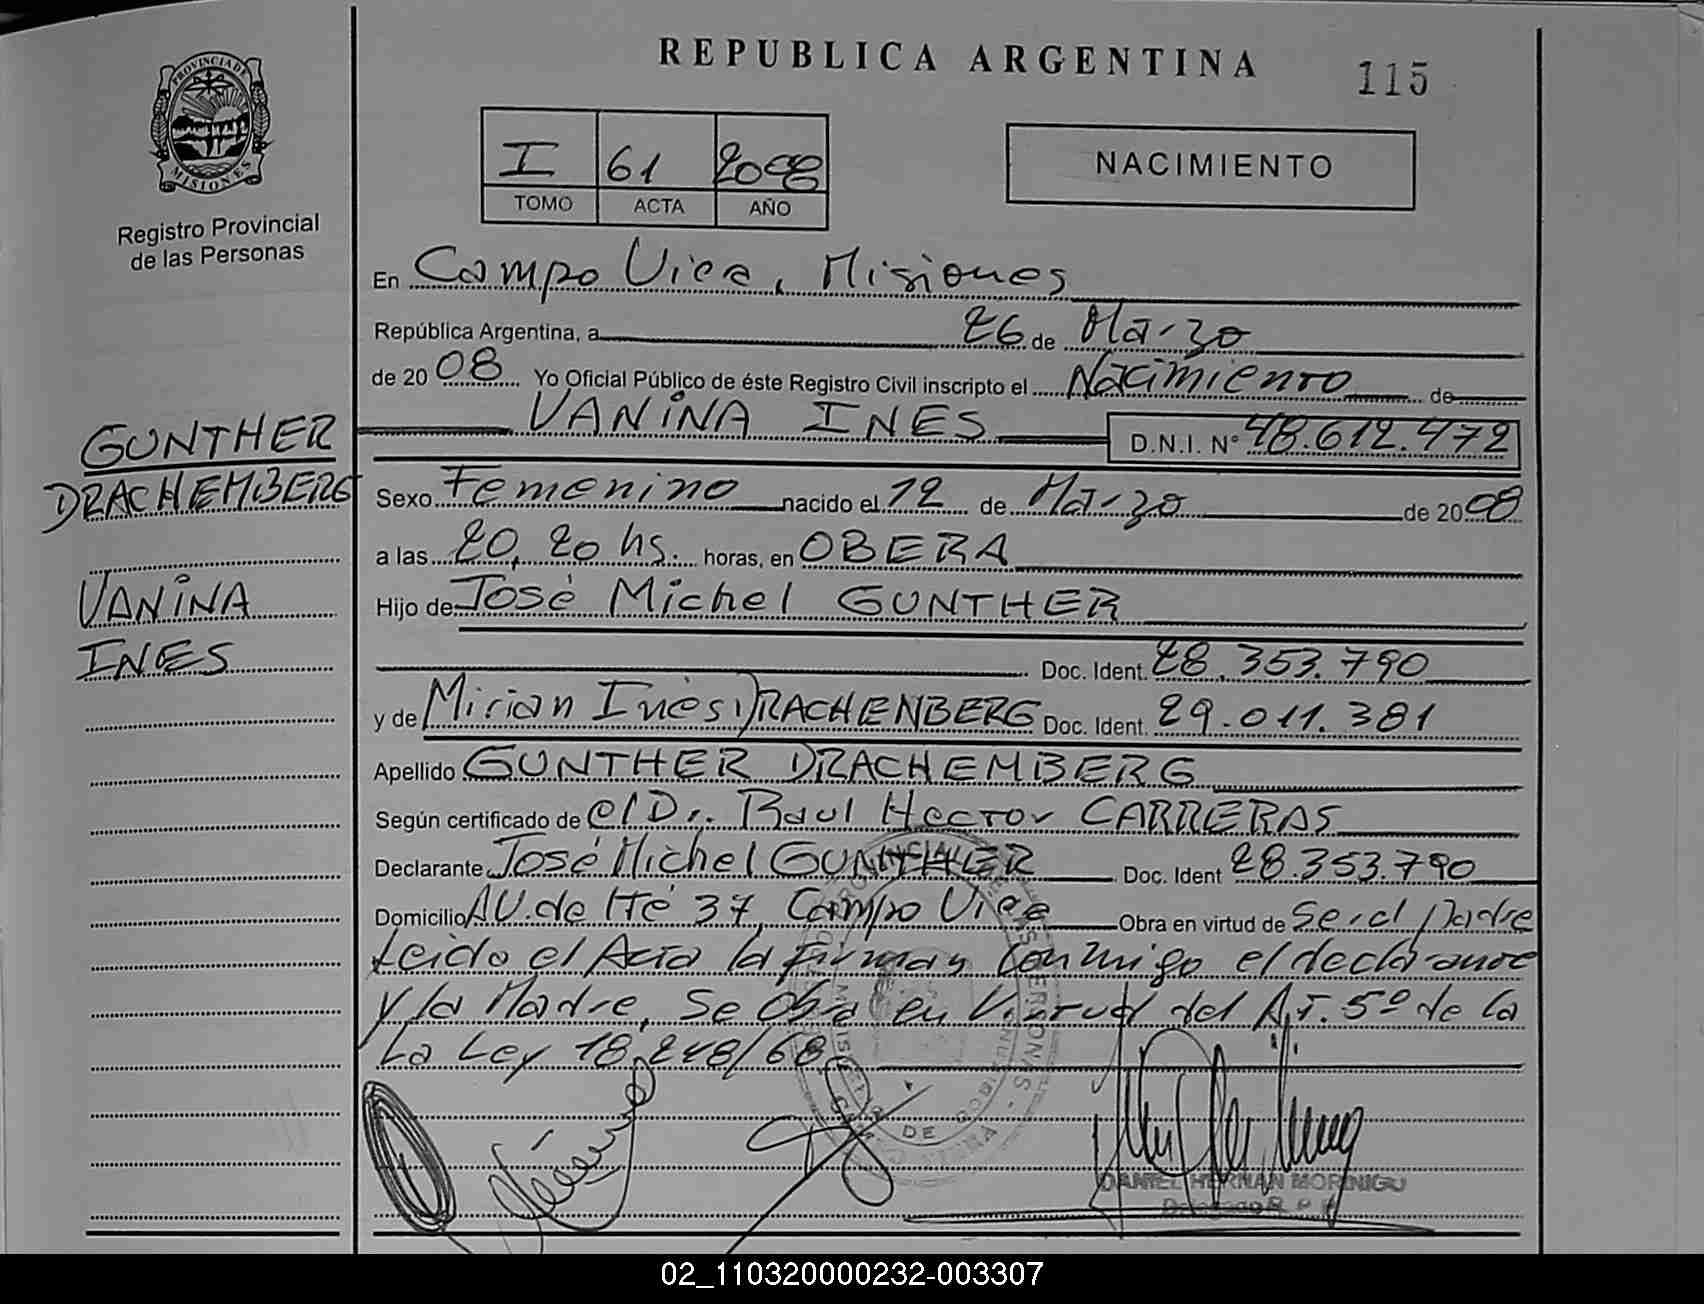 REPUBLICA ARGENTINA
115
PROVINCIA DE
MISIONES
Registro Provincial
de las Personas
I 61 2008
TOMO ACTA AÑO
NACIMIENTO
En Campo Viera, Misiones
República Argentina, a 26 de Marzo
de 20 08 Yo Oficial Público de éste Registro Civil inscripto el Nacimiento de
VANINA INES D.N.I. Nº 48.612.472
GUNTHER
DRACHEMBERG
VANINA
INES
Sexo Femenino nacido el 12 de Marzo de 20 08
a las 20,20 hs. horas, en OBERA
Hijo de José Michel GUNTHER
Doc. Ident. 28.353.790
y de Mirian Inés DRACHENBERG Doc. Ident. 29.011.381
Apellido GUNTHER DRACHEMBERG
Según certificado de el Dr. Raul Hector CARRERAS
Declarante José Michel GUNTHER Doc. Ident 28.353.790
Domicilio AV. del Té 37, Campo Viera Obra en virtud de Ser el padre
Leido el Acta la firman conmigo el declarante
y la Madre, Se Obra en Virtud del Art. 5º de la
La Ley 18.248/68
DANIEL HERNAN MORINIGO
Delegado R. P. P.
02_110320000232-003307